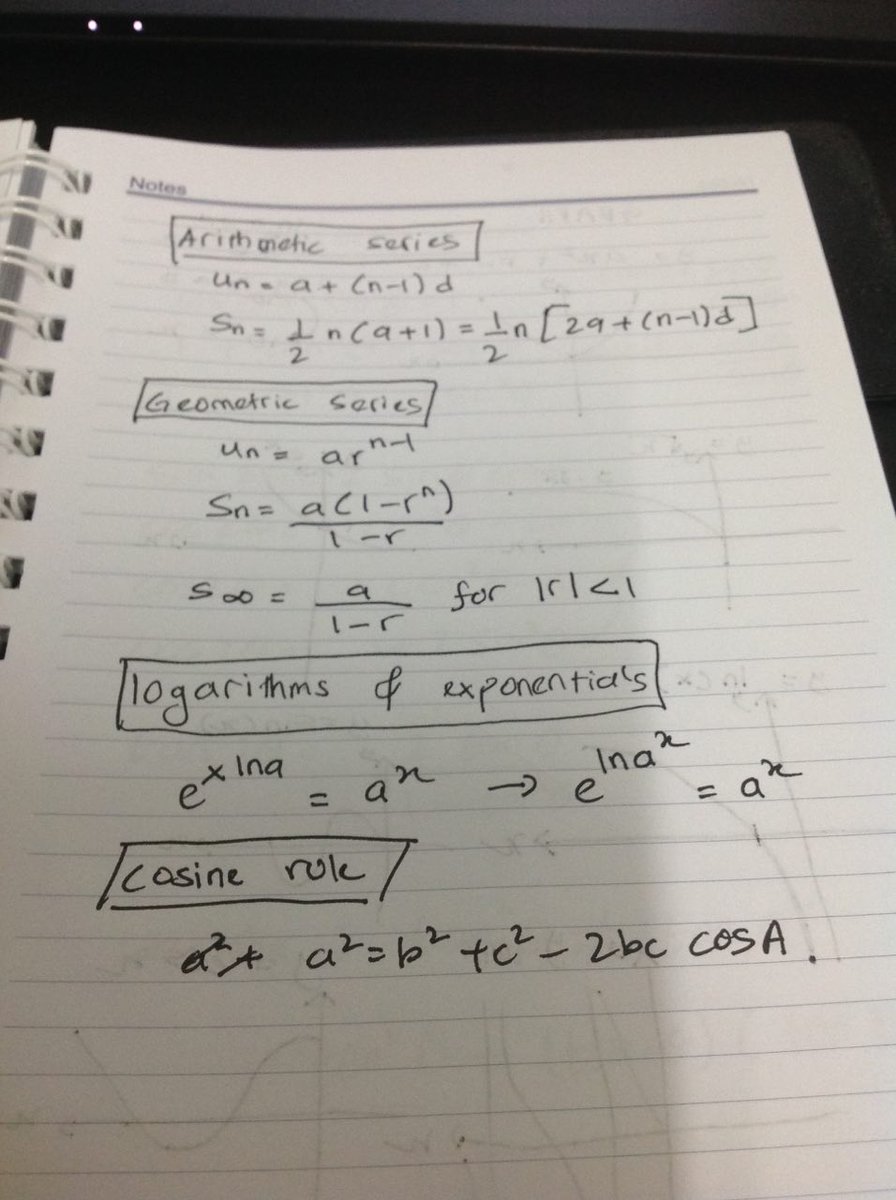 Notes
Arithmetic series
Un = a + (n-1)d
Sn = 1/2 n(a+1) = 1/2 n[2a+(n-1)d]
Geometric series
Un = ar^(n-1)
Sn = a(1-r^n)/(1-r)
S∞ = a/(1-r) for |r|<1
logarithms & exponentials
e^(x ln a) = a^x → e^(ln a^x) = a^x
Cosine rule
a² + a² = b² + c² - 2bc cos A.